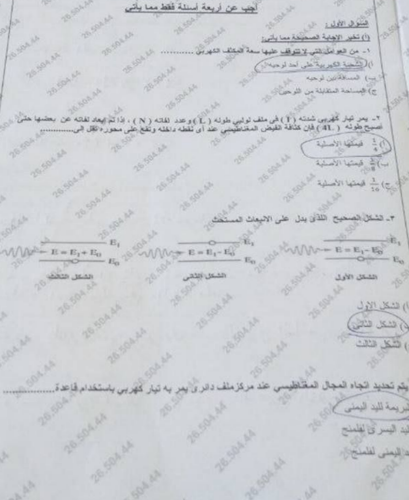 أجب عن أربعة أسئلة فقط مما يأتي
السؤال الأول :
(أ) تخير الإجابة الصحيحة مما يأتي:
١- من العوامل التي لا تتوقف عليها سعة المكثف الكهربي ............
أ) الشحنة الكهربية على أحد لوحيه
ب) المسافة بين لوحيه
ج) المساحة المتقابلة من اللوحين
٢- يمر تيار كهربي شدته ( I ) في ملف لولبي طوله ( L ) وعدد لفاته ( N ) ، إذا تم إبعاد لفاته عن بعضها حتى
أصبح طوله ( 4L ) فإن كثافة الفيض المغناطيسي عند أي نقطة داخله وتقع على محوره تقل إلى............
أ) 1/4 قيمتها الأصلية
ب) قيمتها الأصلية
ج) 1/16 قيمتها الأصلية
٣- الشكل الصحيح الذي يدل على الانبعاث المستحث
E1 E1
E = E1 + E0 E = E1 - E0 E = E1 - E0
E0 E0 E0
الشكل الأول الشكل الثاني الشكل الثالث
الشكل الأول
الشكل الثاني
الشكل الثالث
يتم تحديد اتجاه المجال المغناطيسي عند مركز ملف دائري يمر به تيار كهربي باستخدام قاعدة............
لليد اليمنى
اليد اليسرى لفلمنج
اليد اليمنى لفلمنج
26.504.44